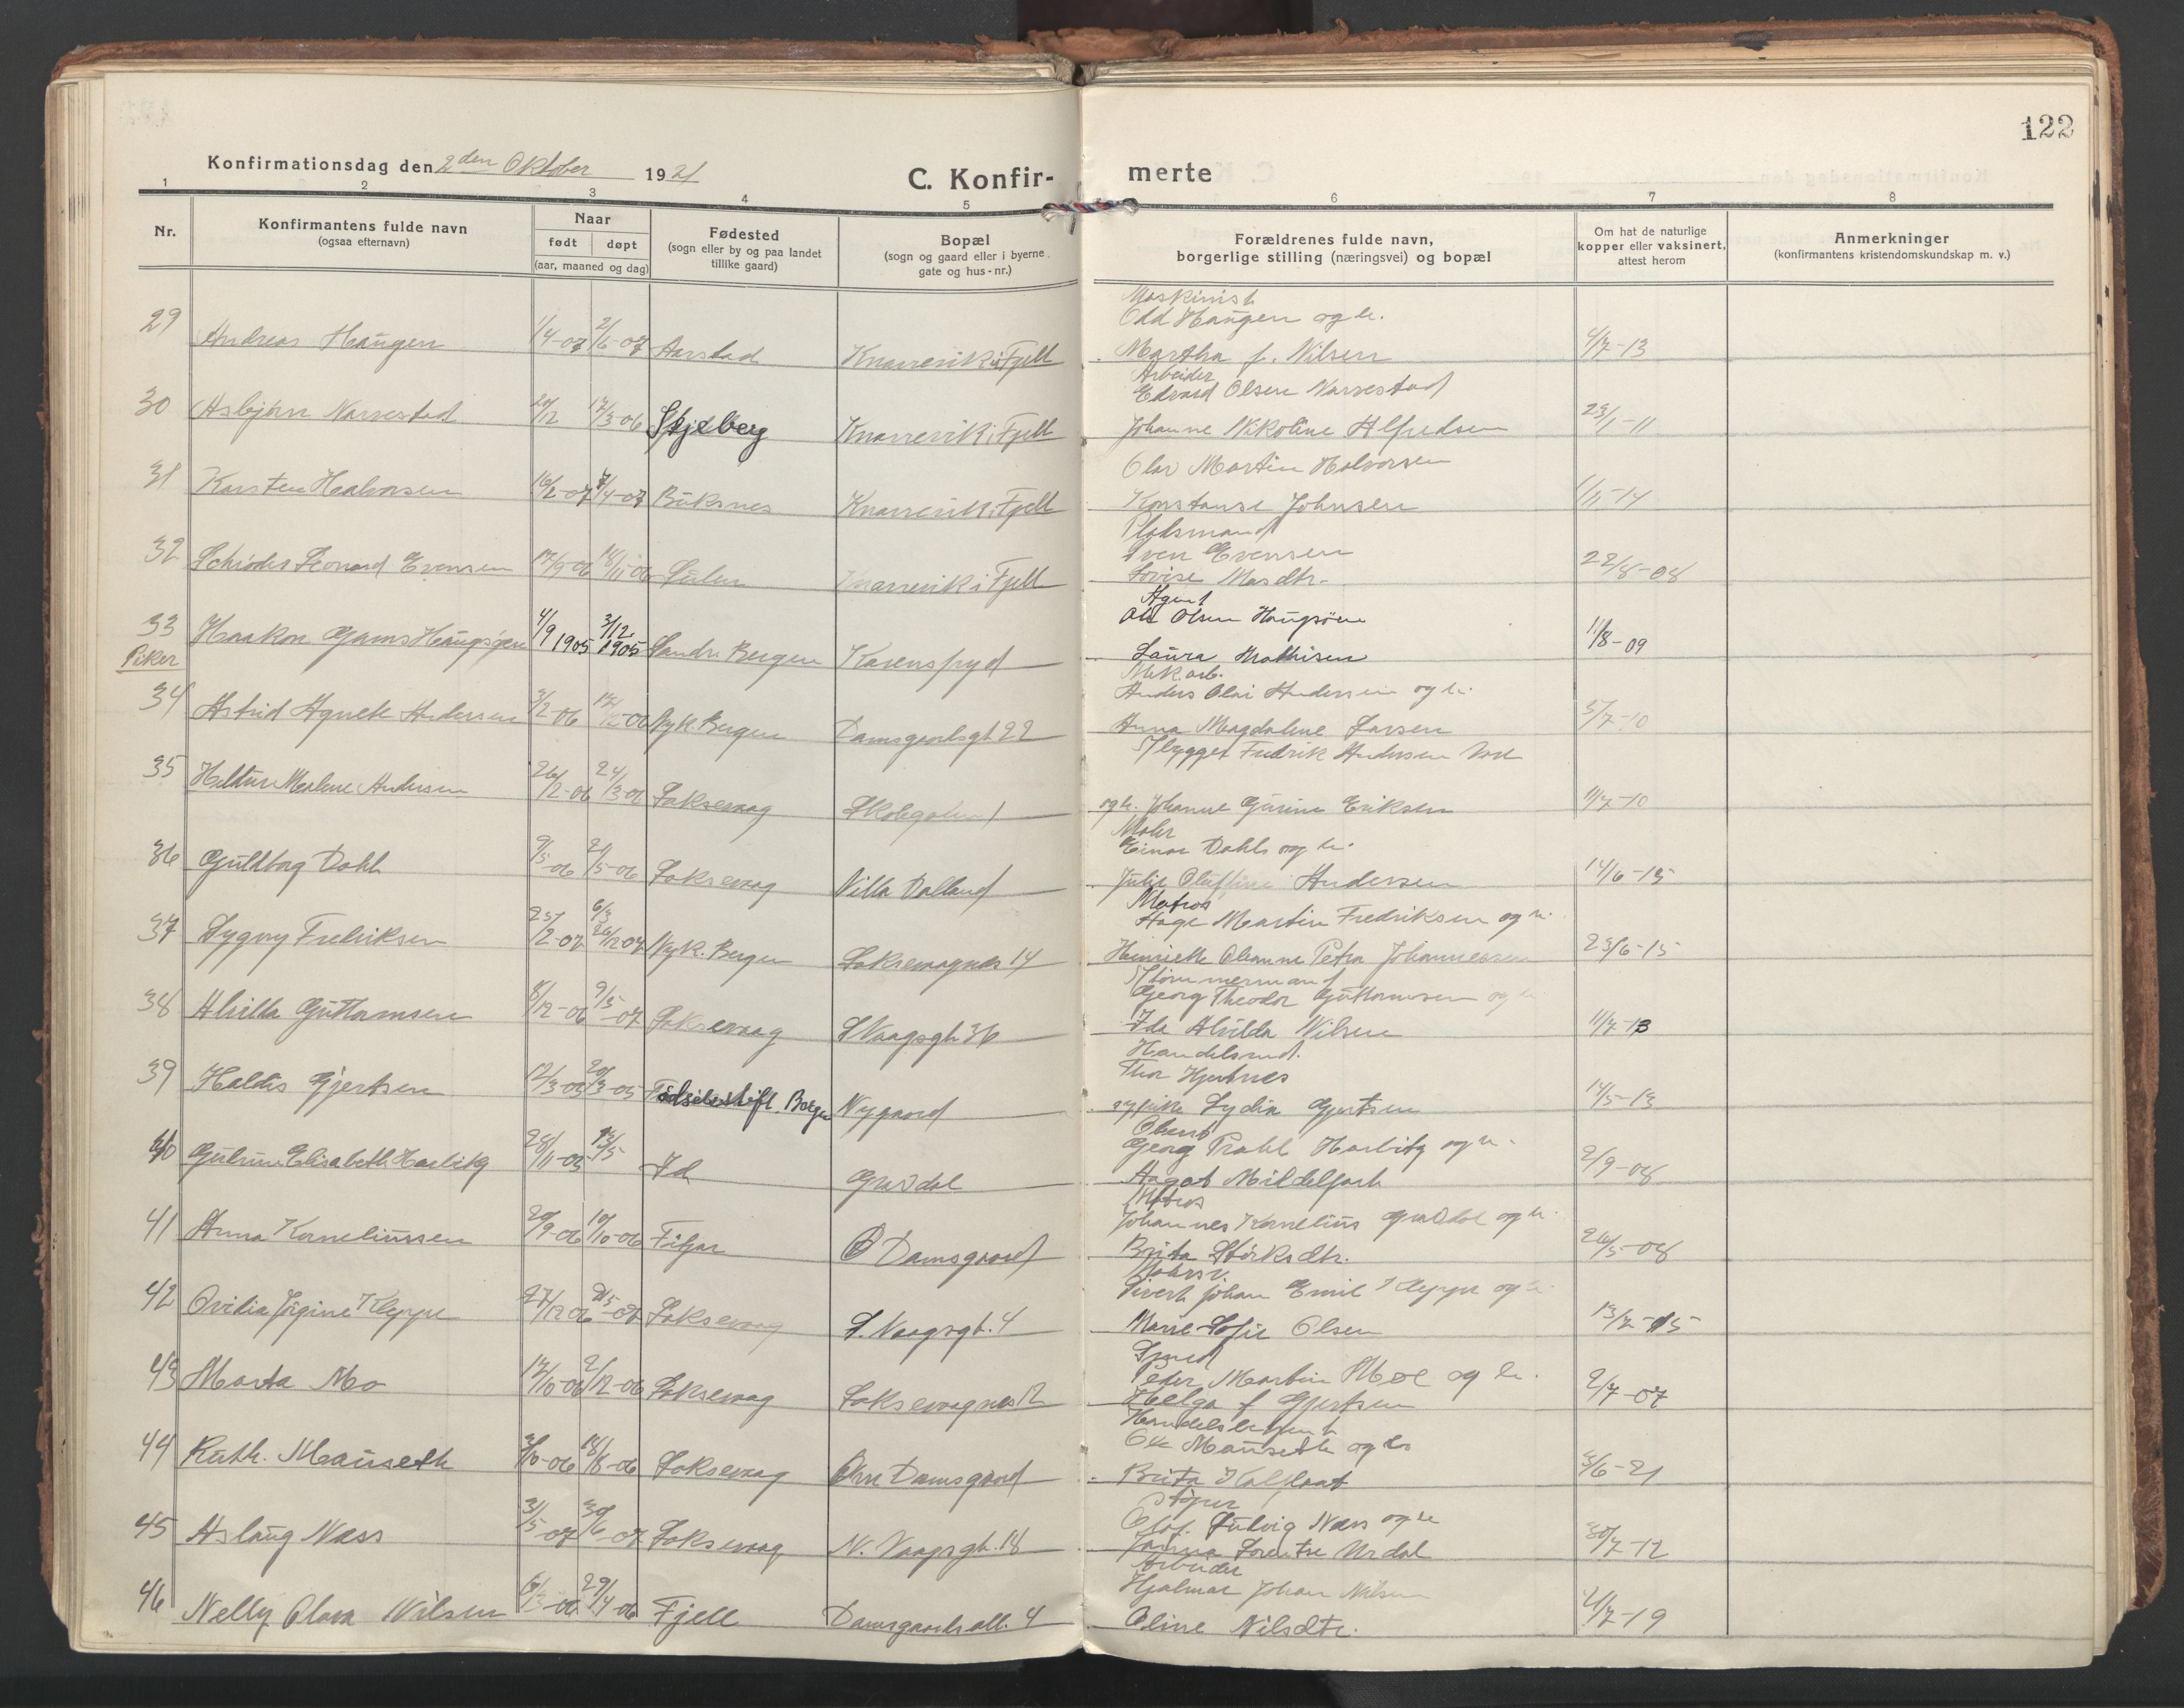 122
Konfirmationsdag den 2den Oktober 1921
C. Konfir-
merte
1 2 3 4 5 6 7 8
Nr.
Konfirmantens fulde navn
(ogsaa efternavn)
Naar
født døpt
(aar, maaned og dag)
Fødested
(sogn eller by og paa landet
tillike gaard)
Bopæl
(sogn og gaard eller i byerne
gate og hus-nr.)
Forældrenes fulde navn,
borgerlige stilling (næringsvei) og bopæl
Om hat de naturlige
kopper eller vaksinert,
attest herom
Anmerkninger
(konfirmantens kristendomskundskap m. v.)
Maskinist
Odd Haugen og h.
29 Andreas Haugen 1/4-07 2/6-07 Aarstad Knarrevik i Fjell Martha f. Nilsen 4/7-13
Arbeider
Edvard Olsen Narrestad
30 Asbjørn Narrestad 20/12 17/3-06 Skjeberg Knarrevik i Fjell Johanne Nikoline Alfredsen 23/1-11
Olav Martin Halvorsen
31 Karsten Halvorsen 16/2-07 7/4-07 Buksnes Knarrevik i Fjell Konstanse Johnsen 1/11-14
Pladsmand
Sven Evensen
32 Schrøder Leonard Evensen 17/9-06 18/11-06 Knarrevik i Fjell Lovise Masdtr. 22/8-08
Agent
Ole Olsen Haugsøen
33 Haakon Gams Haugsøen 4/9 1905 3/12 1905 Sandv. Bergen Karensfryd Laura Mathisen 11/8-09
Piker
Mek. arb.
Anders Olai Andersen og h.
34 Astrid Agnete Andersen 3/2-06 Nyk. Bergen Damsgaardsgt 22 Anna Magdalene Larsen 5/7-10
Fredrik Andersen
35 Andersen 26/2-06 24/3-06 Laksevaag Skolegaten 1 og h. Johanne Gurine Eriksen 11/7-10
Maler
Einar Dahl og h.
36 Guldborg Dahl 9/5-06 Laksevaag Villa Dalland Julie Olufine Andersen 14/6-15
Matros
Hage Martin Fredriksen og h.
37 Sygny Fredriksen 25/2-07 6/3 26/12 07 Nyk. Bergen Laksevaagnes 14 Henriette Olianne Petra Johannessen 23/6-15
Tømmermand
Georg Theodor Guttormsen og h.
38 Alvilda Guttormsen 8/12-06 9/5-07 Laksevaag S Vaagsgt 36 Ida Alvilda Nilsen 11/7-13
Handelsmd.
Thor Hjertnes
39 Haldis Gjertsen 12/3-05 20/3-05 Fødselsstift. Bergen Nygaard Lydia Gjertsen 14/5-13
Georg Prahl Harbitz og h.
40 Gudrun Elisabeth Harbitz 28/11-05 13/5 Id Gravdal Aagot Mildelfart 2/9-08
Matros
Johannes Kornelius Gravdal og h.
41 Anna Korneliussen 20/9-06 10/10-06 Fitjar Ø Damsgaard Brita Størksdtr. 26/5-08
Sivert Johan Emil Kleppe og h.
42 Ovidia Jørgine Kleppe 27/12 06 2/5-07 Laksevaag S. Vaagsgt. 4 Marie Sofie Olsen 13/7-15
Smed
Peder Martin Moe og h.
43 Marta Mo 17/10-06 2/12-06 Laksevaag Laksevaagnes 12 Helga f Gjertsen 2/7-07
Handelsagent
Ole Mauseth og h
44 Ruth. Mauseth 18/8-06 Laksevaag Øvre Damsgaard Brita Kalfaat 3/6-21
Støper
Olaf Ludvig Næss og h
45 Aslaug Næss 31/5-07 30/6-07 Laksevaag N. Vaagsgt. 18 Janna Lorentse Urdal 30/7-12
Arbeider
Hjalmar Johan Nilsen
46 Nelly Olava Nilsen 6/3-06 29/4-06 Fjell Damsgaards all. 4 Oline Nilsdtr. 4/7-19